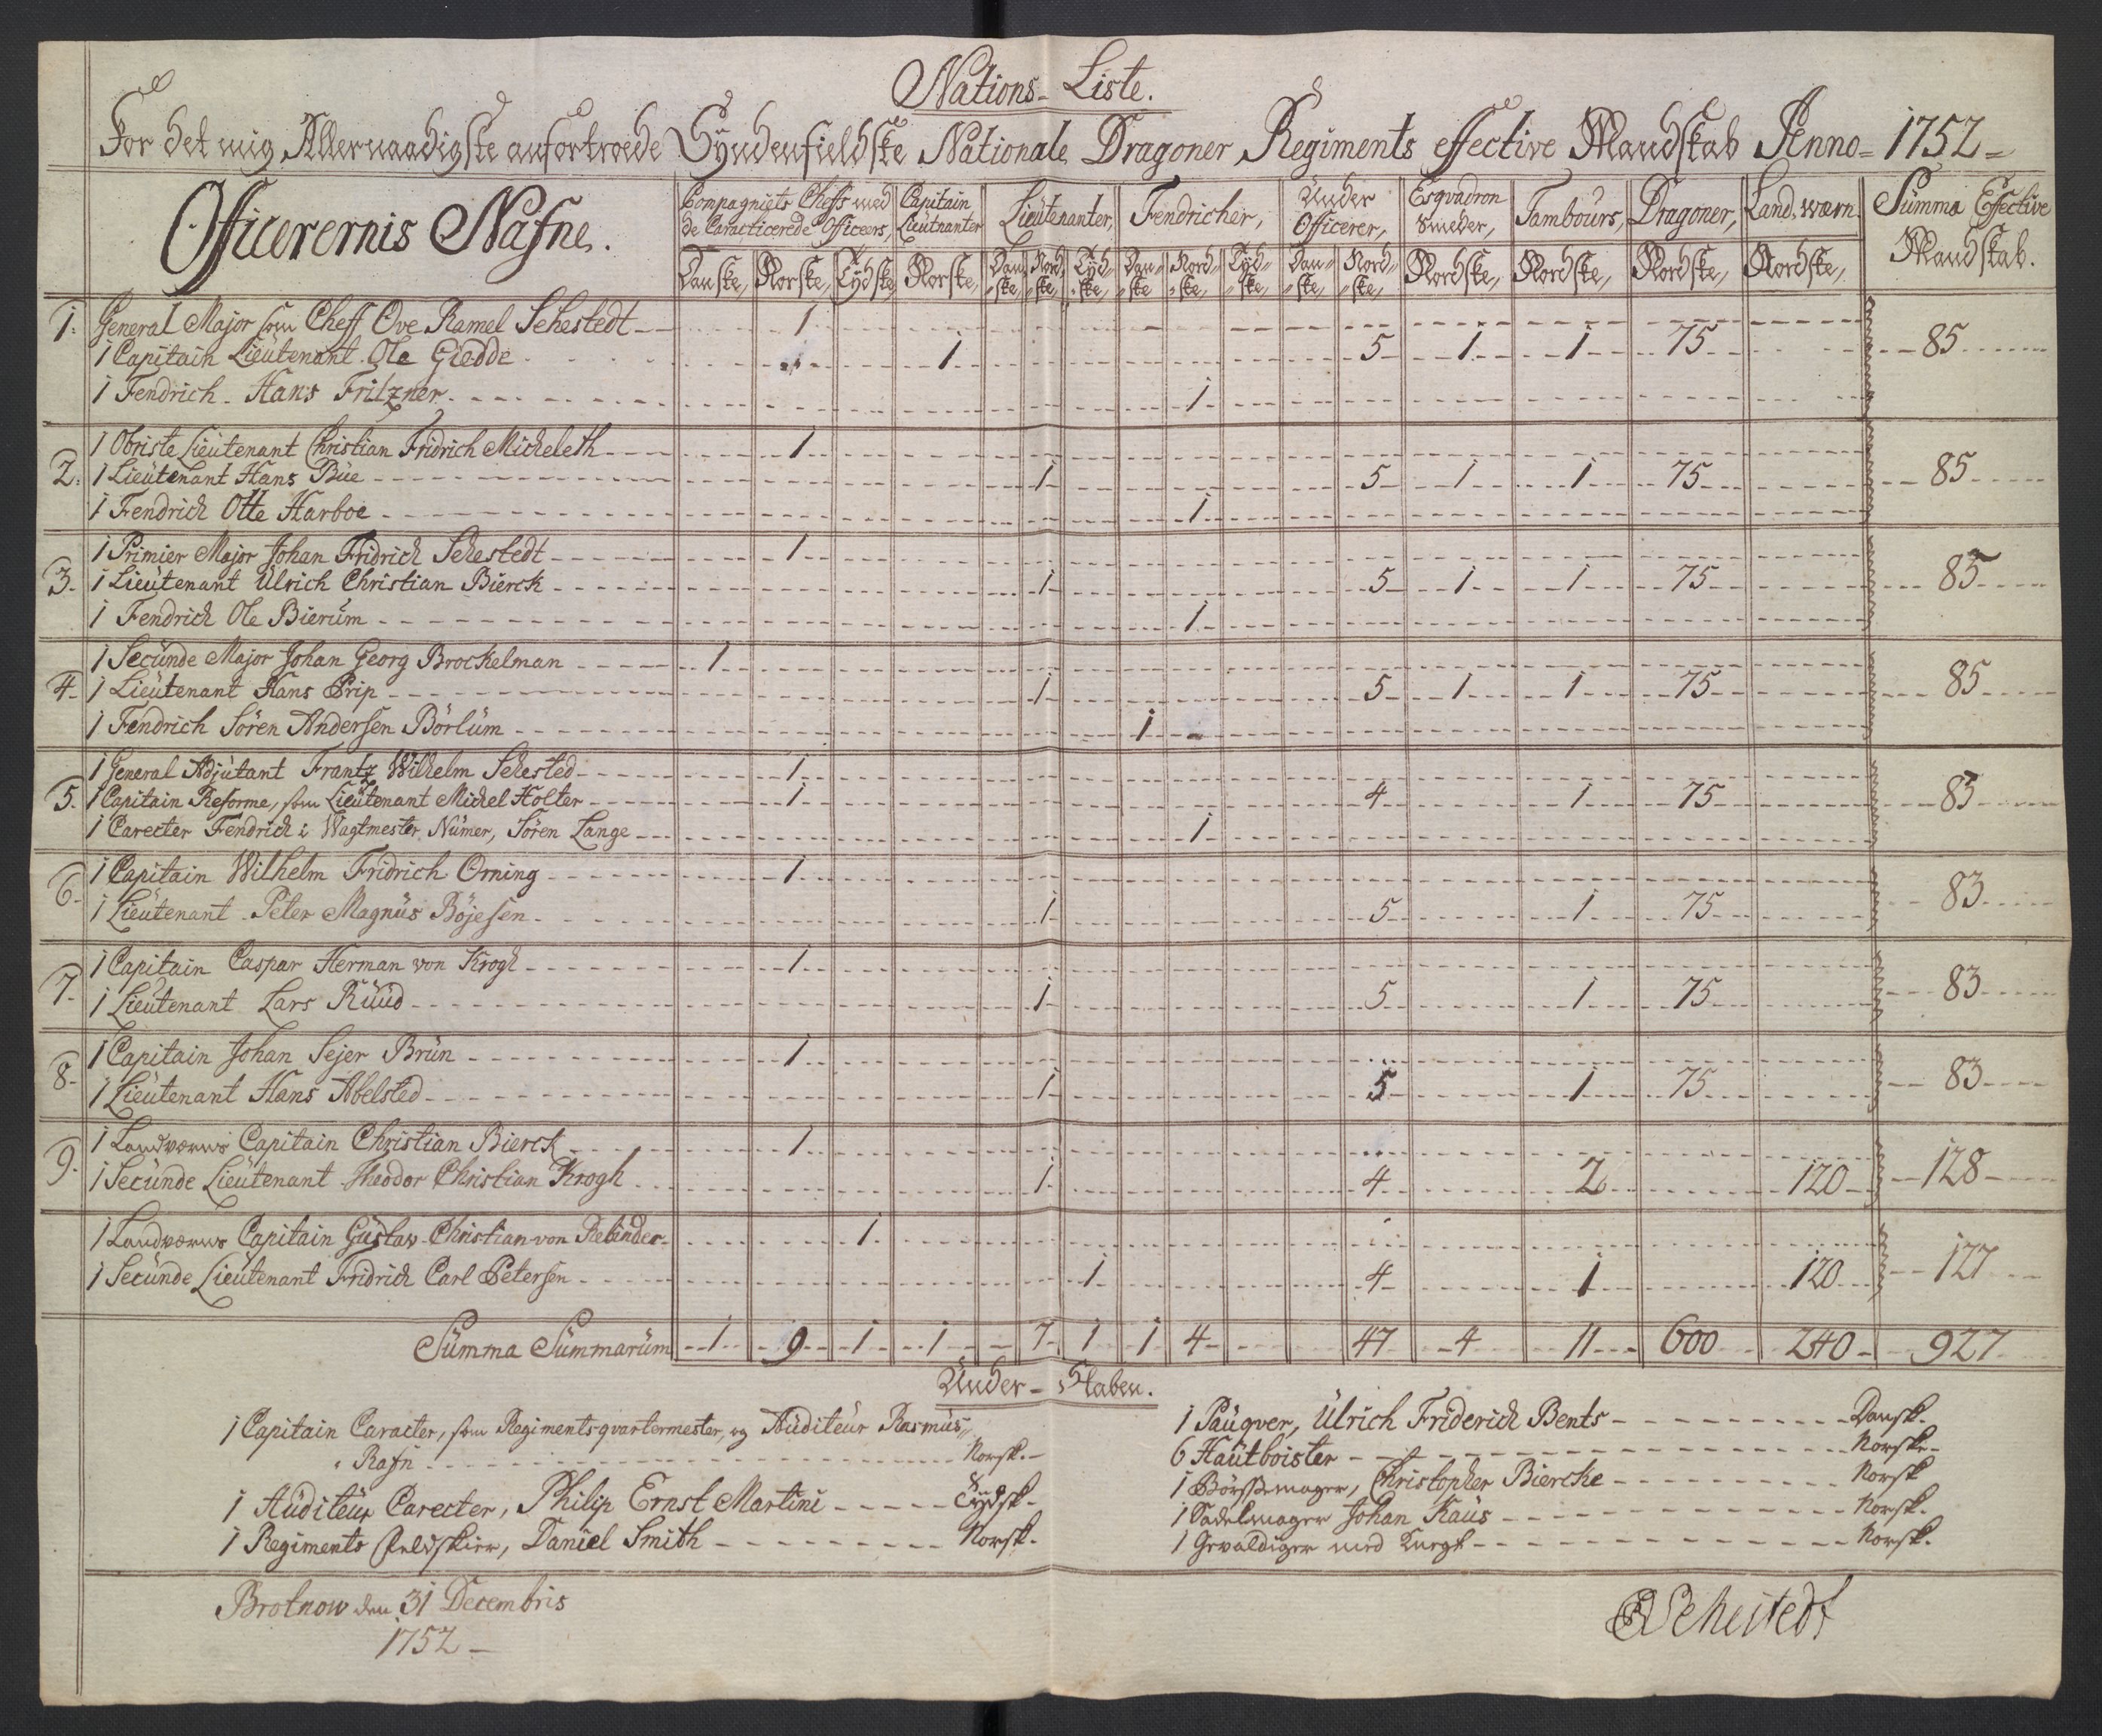 Nations- Liste.
For det mig Allernaadigste anfortroede Syndenfieldske Nationale Dragoner Regiments effective Mandskab Anno- 1752-
Officerernis Nafne. Compagniets Cheffs med de Caracticerede Officeers, Capitain Lieutnanter Lieutenanter, Fendricher, Under Officerer, Esqvadron Smeder, Tambours, Dragoner, Land. wærn Summa Effective Mandskab.
Danske, Norske, Tydske Norske, Dan- ske, Nord- ske, Tyd- ske, Dan- ske Nord- ske, Tyd- ske, Dan- ske, Nord- ske, Nordske, Nordske, Nordske, Nordske,
1. General Major som Cheff Ove Ramel Sehestedt 1
1 Capitain Lieutenant Ole Giedde 1 5 1 1 75 85
1 Fendrich Hans Fritzner 1
1 Obriste Lieutenant Christian Fridrich Micheleth 1
2. 1 Lieutenant Hans Büe 1 5 1 1 75 85
1 Fendrich Otte Harboe 1
1 Primier Major Johan Fridrich Sehestedt 1
3. 1 Lieutenant Ulrich Christian Bierck 1 5 1 1 75 85
1 Fendrich Ole Bierum 1
1 Secunde Major Johan Georg Brockelman 1
4. 1 Lieutenant Hans Prip 1 5 1 1 75 85
1 Fendrich Sören Andersen Börlüm 1
1 General Adjutant Frantz Wilhelm Sehested 1
5. 1 Capitain Reforme, som Lieutenant Michel Holter 1 4 1 75 83
1 Carecter Fendrich i Wagtmester Numer, Sören Lange 1
6. 1 Capitain Wilhelm Fridrich Orning 1
1 Lieutenant Peter Magnus Böjesen 1 5 1 75 83
7. 1 Capitain Caspar Herman von Krogh 1
1 Lieutenant Lars Rüüd 1 5 1 75 83
8. 1 Capitain Johan Sejer Brün 1
1 Lieutenant Hans Abelsted 1 5 1 75 83
9. 1 Landværns Capitain Christian Bierck 1
1 Secunde Lieutenant Theodor Christian Krogh 1 4 2 120 128
1 Landværns Capitain Güstav Christian von Rebinder 1
1 Secunde Lieutenant Fridrich Carl Petersen 1 4 1 120 127
Summa Summarum 1 9 1 1 7 1 1 4 47 4 11 600 240 927
Under- Staben.
1 Capitain Caracter, som Regimentsqvartermester, og Auditeur Rasmus
Rafn Norsk.
1 Auditeur Carecter, Philip Ernst Martini Tydsk.
1 Regiments Feldskier, Daniel Smith Norsk.
1 Pauqver, Ulrich Friderich Bents Dansk.
6 Hautboister Norske
1 Börssemager, Christopher Biercke Norsk
1 Sadelmager Johan Kaus Norsk.
1 Gevaldiger med Knegt Norsk.
Brotnow den 31 Decembris
1752
Sehestedt